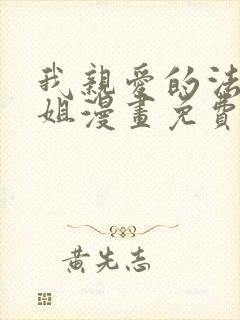 我親愛的法
姐漫畫免費
黃先志